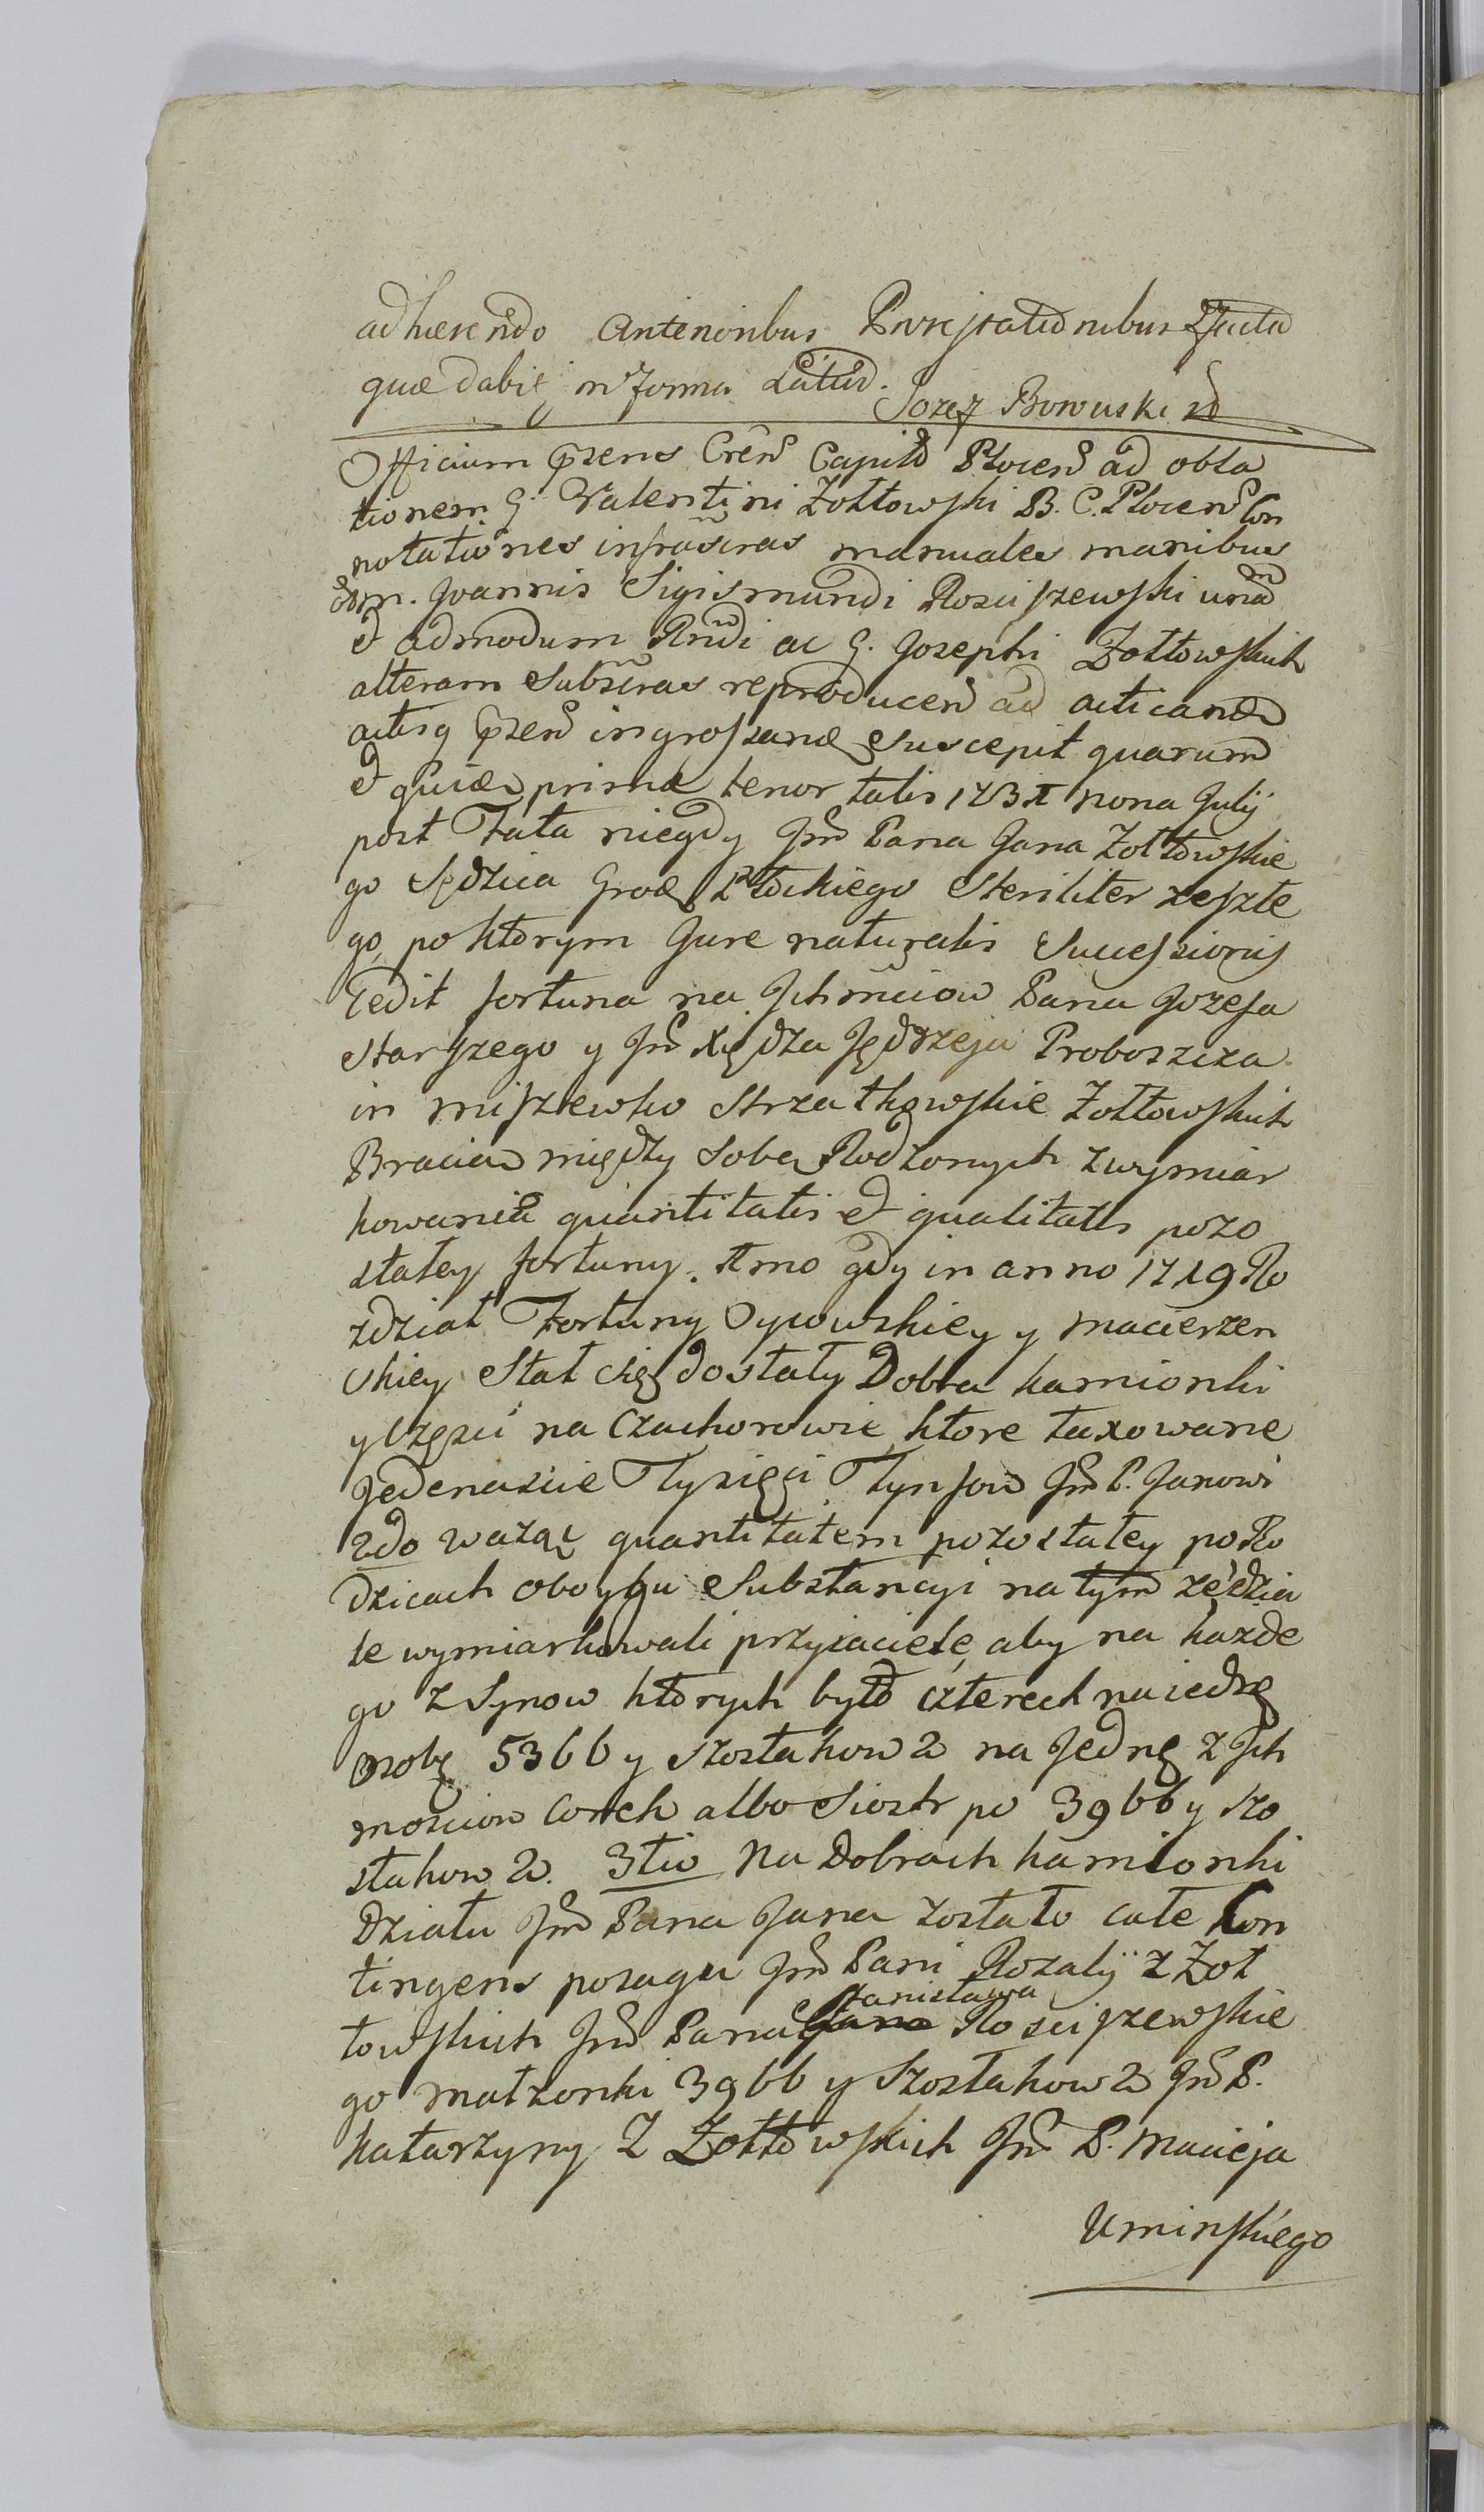 adhærendo Anterioribus Protestationibus facta
quæ dabit in forma Latius. Jozef Borowski
Officium Pñzens Cren̄ Capitł Plocen̄ ad obla
tionem G. Valentini Zołtowski B. C. Plocen̄ Con
notationes infrascras manuales manibus
Mm. Joannis Sigismundi Rosciszewski unā
et admodum Rndi ac G. Josephi Zołtowskich
alteram Subscras reproducen̄ ad acticand
actisq Pñzen̄ ingrossand suscepit quarum
et quidē primæ tenor talis 1731 nona Julij
post Fata niegdy Jm̄ Pana Jana Zołtowskie
go Sędzica Grodz Płockiego Steriliter zeszłe
go, po ktorym Jure naturalis Successionis
Cedit fortuna na Ichmciow Pana Jozefa
Starszego y Jm̄ Xiędza Jędrzeja Proboszcza
in Miszewko Strzałkowskie Zołtowskich
Bracia między sobą Rodzonych z wymiar
kowania quantitatis et qualitatis pozo
stałey fortuny. 1mo gdy in anno 1719 Ro
zdział Fortuny Oycowskiey y Macierzen
skiey Stał się dostały Dobra Kamionki
y częsci na Czachorowie, ktore taxowane
Jedenascie Tysięcy Tynfow Jm̄ P. Janowi
2do ważąc quantitatem pozostałey po Ro
dzicach oboyga Substancyi na tym że dzia
le wymiarkowali przyiaciele, aby na każde
go z Synow ktorych było czterech na iedną
osobę 5366 y szostakow 2 na Jednę z Ich
mosciow Corek albo Siostr po 3966 y szo
stakow 2. 3tio Na Dobrach Kamionki
Działu Jm̄ Pana Jana zostało całe Con
tingens posagu Jm̄ Pani Rozalij z Żoł
towskich Jm̄ Pana Stanisława Rosciszewskie
go małżonki 3966 y Szostakow 2 Jm̄ P.
Katarzyny Z Zołtowskich Jm̄ P. Macieja
Uminskiego